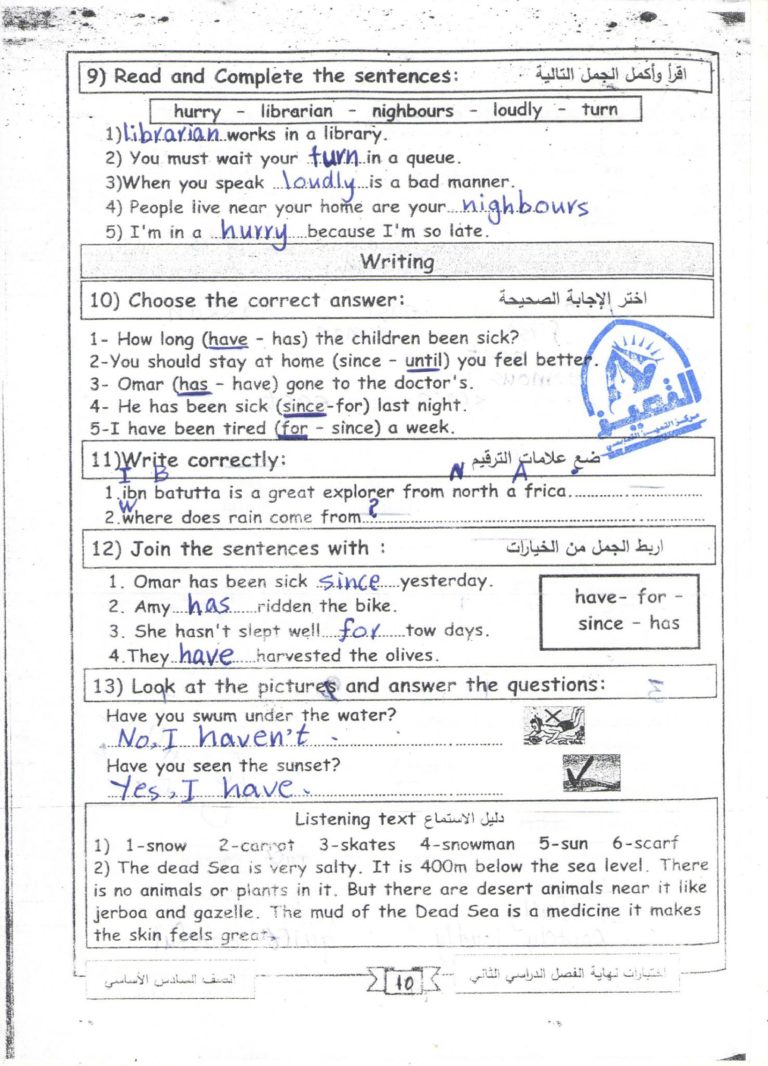 9) Read and Complete the sentences: اقرأ وأكمل الجمل التالية
hurry – librarian – nighbours – loudly – turn
1)librarian works in a library.
2) You must wait your turn in a queue.
3)When you speak loudly is a bad manner.
4) People live near your home are your nighbours
5) I'm in a hurry because I'm so late.
Writing
10) Choose the correct answer: اختر الإجابة الصحيحة
1- How long (have – has) the children been sick?
2-You should stay at home (since – until) you feel better.
3- Omar (has – have) gone to the doctor's.
4- He has been sick (since-for) last night.
5-I have been tired (for – since) a week.
11)Write correctly: ضع علامات الترقيم
I B N A
1.ibn batutta is a great explorer from north a frica.
W
2.where does rain come from ?
12) Join the sentences with : اربط الجمل من الخيارات
1. Omar has been sick since yesterday.
2. Amy has ridden the bike.
3. She hasn't slept well for tow days.
4.They have harvested the olives.
have- for -
since – has
13) Look at the pictures and answer the questions:
Have you swum under the water?
No, I haven't.
Have you seen the sunset?
Yes, I have.
Listening text دليل الاستماع
1) 1-snow 2-carrot 3-skates 4-snowman 5-sun 6-scarf
2) The dead Sea is very salty. It is 400m below the sea level. There
is no animals or plants in it. But there are desert animals near it like
jerboa and gazelle. The mud of the Dead Sea is a medicine it makes
the skin feels great.
اختبارات نهاية الفصل الدراسي الثاني 10 الصف السادس الأساسي